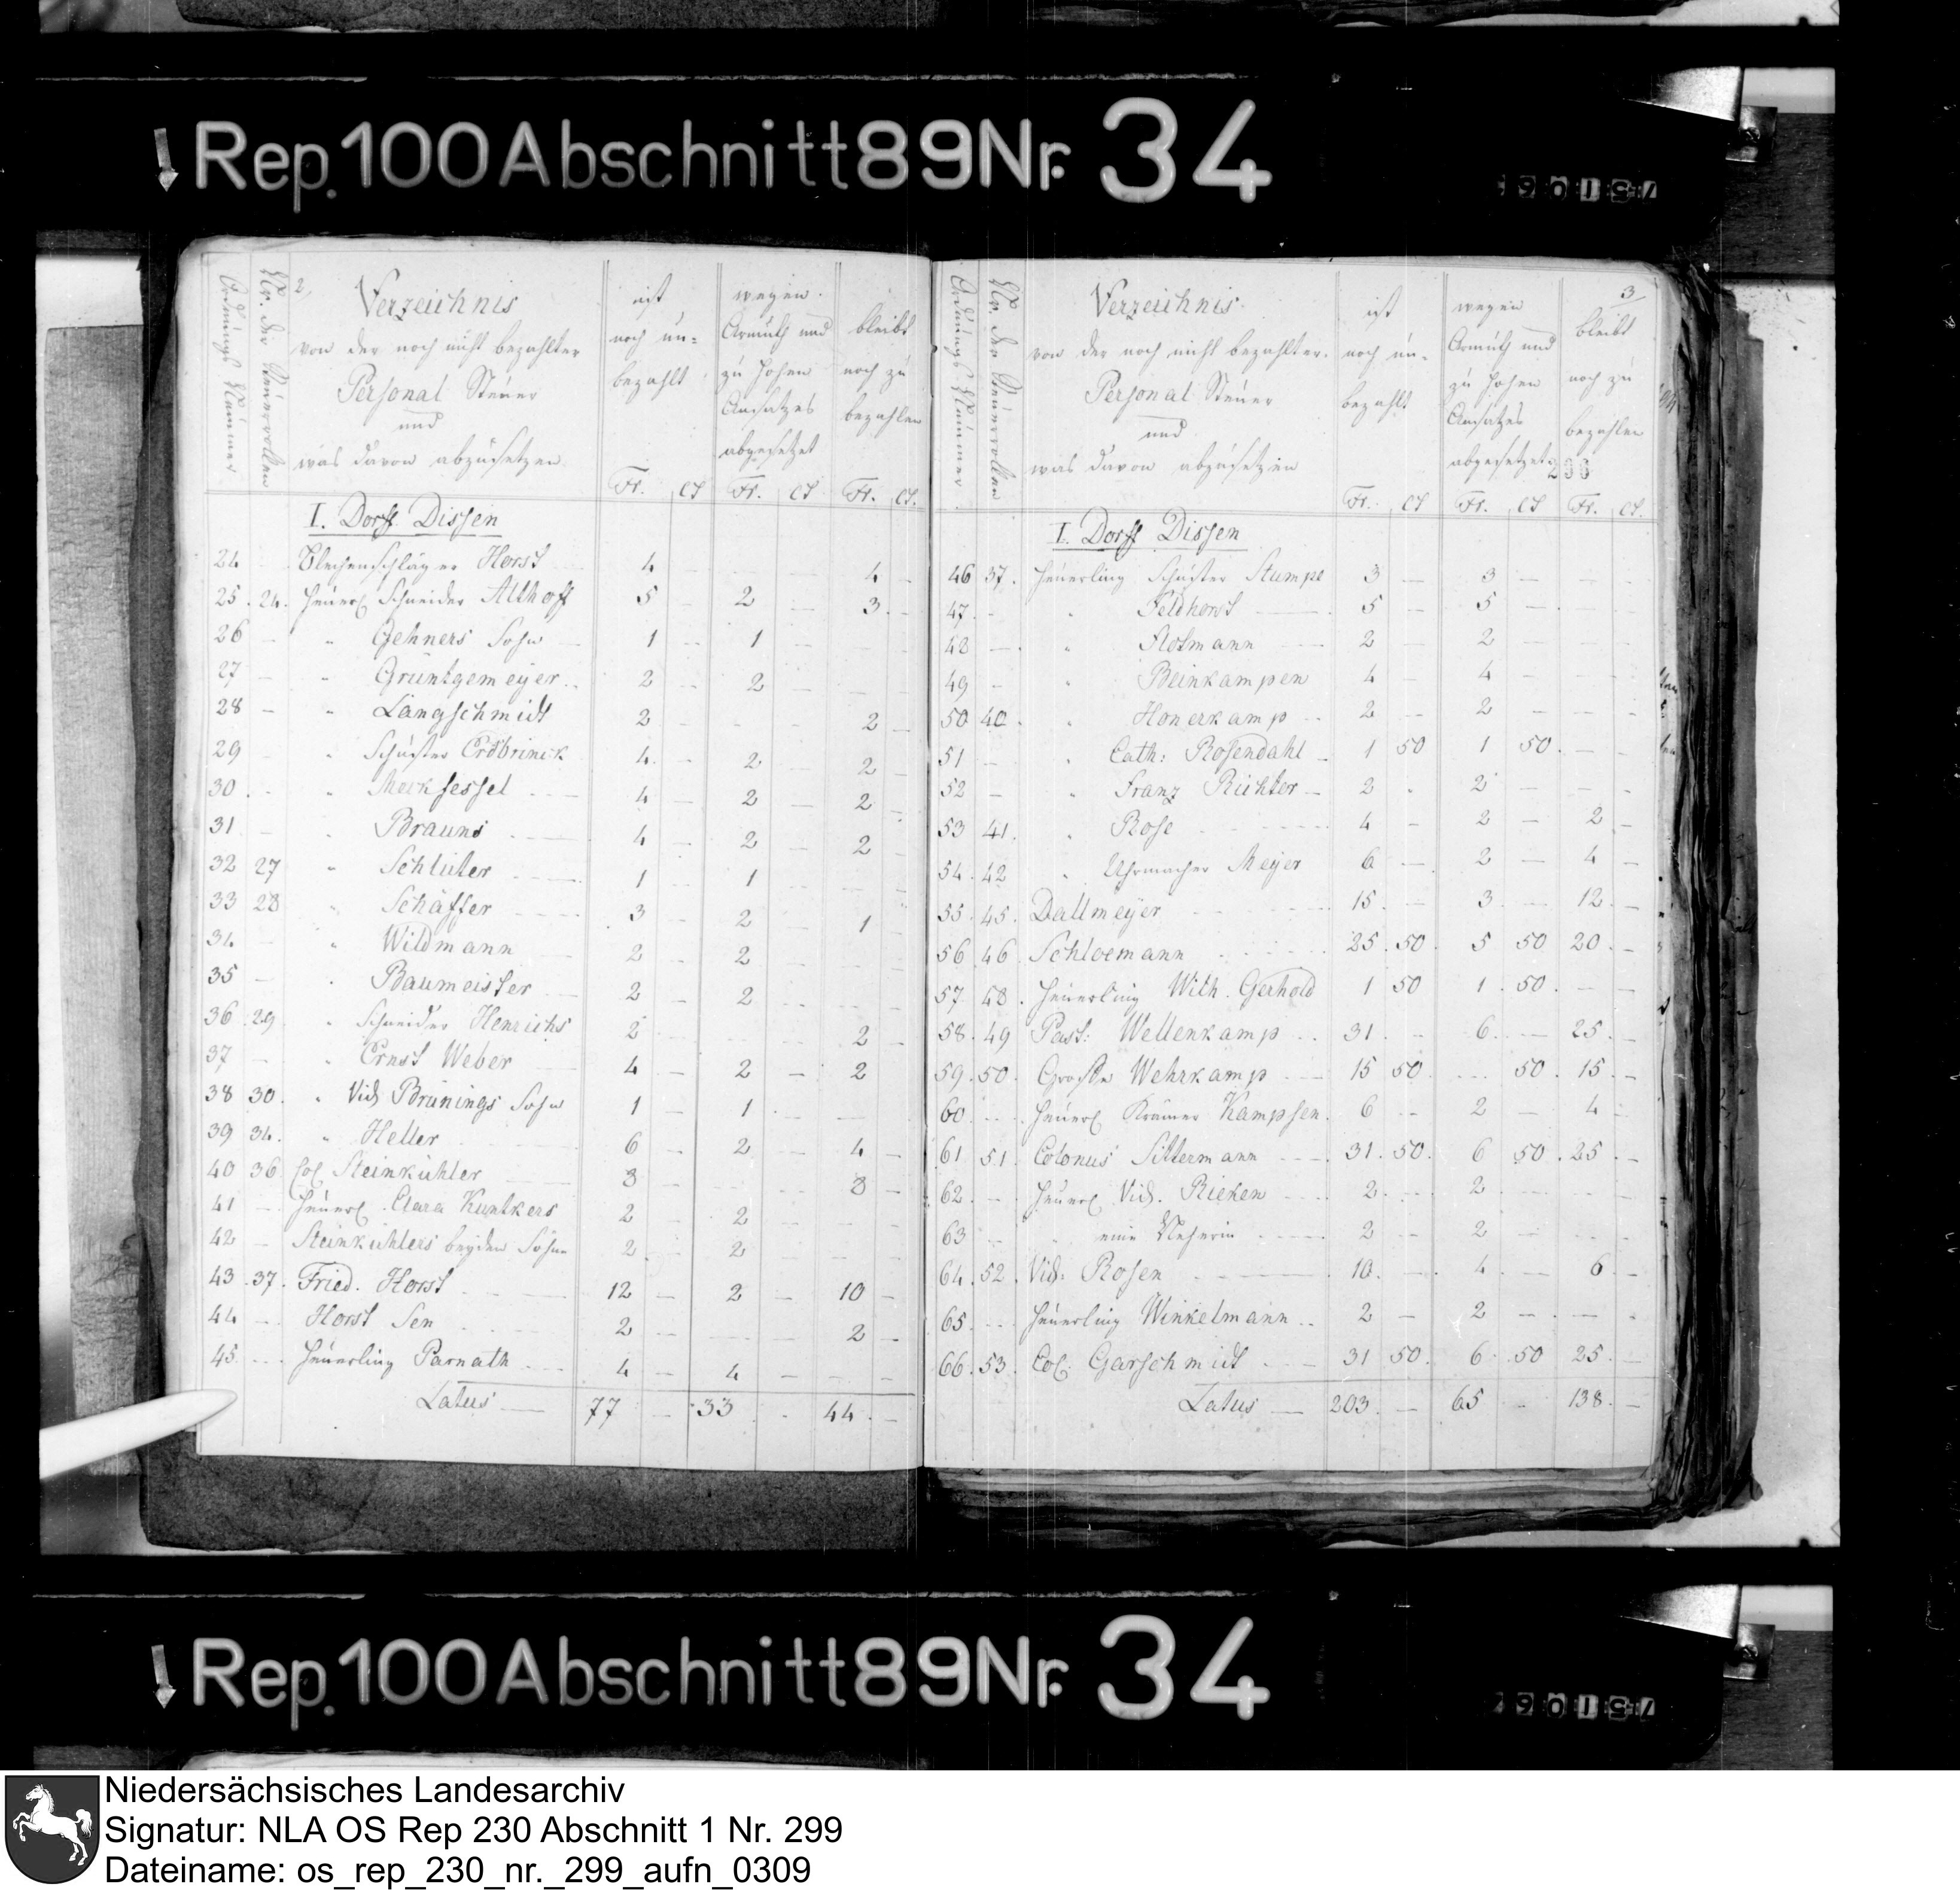 Rep. 100 Abschnitt 89 Nr. 34
2.
Ordnungs Nummer
Nr. der Steuerrollen
Verzeichnis
von der noch nicht bezahlter
Personal Steuer
und
was davon abzusetzen
ist
noch un=
bezahlt
wegen
Armuth und
zu hohen
Ansatzes
abgesetzt
bleibt
noch zu
bezahlen
Fr. Ct Fr. Ct Fr. Ct.
I. Dorff Dissen
24 Blechenschläger Horst 4 — 4 —
25. 24. Heuerl Schneider Althoff 5 — 2 — 3. —
26 — " Gehners Sohn 1 — 1 —
27 — " Grüntgemeyer 2 — 2 —
28 — " Langschmidt 2 — 2 —
29 — " Schuster Erdbrinck 4. — 2 — 2 —
30. — " Merksessel 4 — 2 — 2 —
31 — " Brauns 4 — 2 — 2 —
32 27 " Schlüter 1 — 1 —
33 28 " Schäffer 3 — 2 — 1 —
34 — " Wildmann 2 — 2 —
35 — " Baumeister 2 — 2 —
36. 29 " Schneider Henrichs 2 — 2 —
37 — " Ernst Weber 4 — 2 — 2
38 30. " Vid Brünings Sohn 1 — 1 —
39 34. " Heller 6 — 2 — 4 —
40 36 Col Steinkühler 8 — 8 —
41 — Heuerl. Clara Kuntkers 2 — 2 —
42 — Steinkühlers beyden Söhne 2 — 2 —
43. 37. Fried. Horst 12 — 2 — 10 —
44 — Horst Sen 2 — 2 —
45. — Heuerling Parnath 4 — 4 —
Latus — 77 — 33 — 44. —
3
Ordnungs Nummer
Nr. der Steuerrollen
Verzeichnis
von der noch nicht bezahlter
Personal Steuer
und
was davon abzusetzen
ist
noch un=
bezahlt
wegen
Armuth und
zu hohen
Ansatzes
abgesetzt
bleibt
noch zu
bezahlen
Fr. Ct Fr. Ct Fr. Ct.
I. Dorff Dissen
46 37. Heuerling Schuster Stumpe 3 — 3 —
47. — " Feldhorst 5 — 5 —
48 — " Flotmann 2 — 2 —
49 — " Beinkampen 4 — 4 —
50 40. " Honerkamp 2 — 2 —
51 — " Cath: Rosendahl 1 50 1 50.
52 — " Franz Richter 2 — 2 —
53 41. " Rose 4 — 2 — 2 —
54. 42 " Uhrmacher Meyer 6 — 2 — 4 —
55. 45. Dallmeyer 15. — 3. — 12. —
56 46 Schloemann 25. 50. 5 50 20. —
57 48. Heuerling Wilh. Gerhold 1 50 1. 50.
58. 49 Past: Wellenkamp 31. — 6. — 25. —
59. 50. Große Wehrkamp 15 50 — 50. 15. —
60. — Heuerl Krämer Kampsen. 6 — 2 — 4 —
61 51. Colonus Sittermann 31. 50. 6 50. 25. —
62. — Heuerl Vid. Rieken 2. — 2 —
63 — eine Neherin 2 — 2 —
64. 52. Vid: Rosen 10. — 4. — 6 —
65. — Heuerling Winkelmann 2 — 2 —
66. 53. Col: Garschmidt 31 50. 6. 50 25. —
Latus — 203. — 65 — 138. —
Rep. 100 Abschnitt 89 Nr. 34
Niedersächsisches Landesarchiv
Signatur: NLA OS Rep 230 Abschnitt 1 Nr. 299
Dateiname: os_rep_230_nr._299_aufn_0309